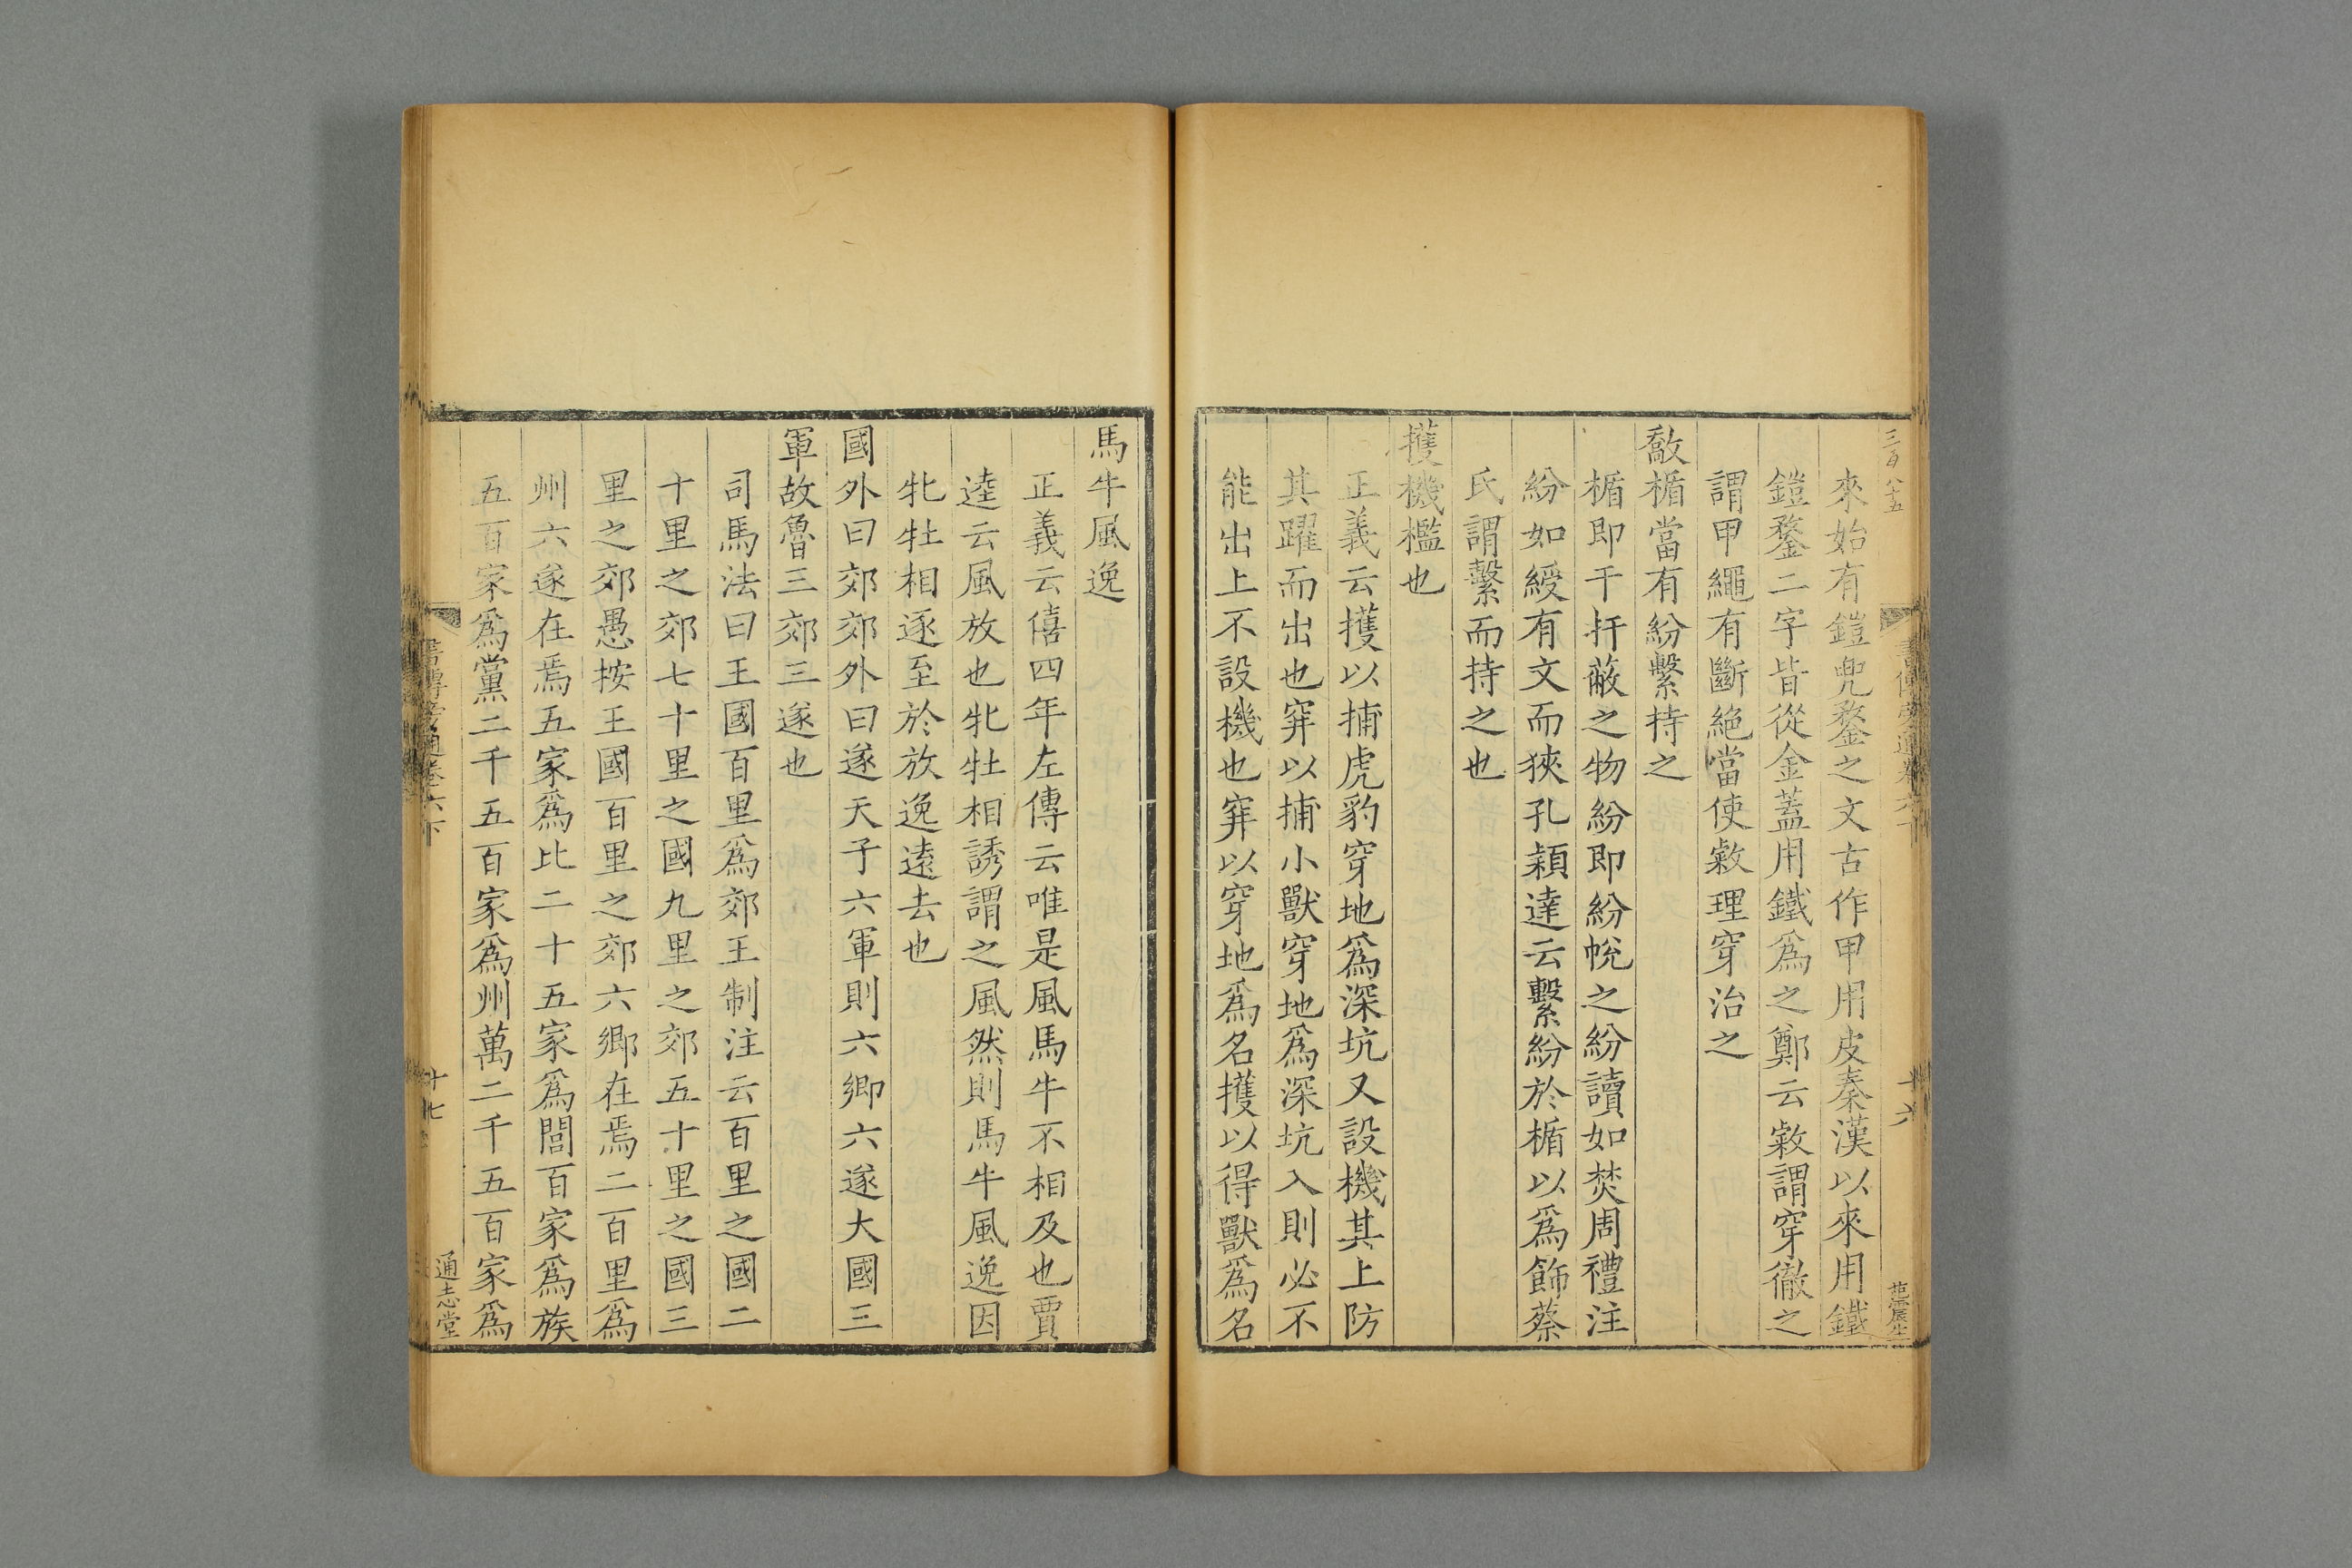 三百八十五
來始有鎧兜鍪之文古作甲用皮秦漢以來用鐵
鎧鍪二字皆從金蓋用鐵爲之鄭云敹謂穿徹之
謂甲繩有斷絕當使敹理穿治之
敿楯當有紛繫持之
楯即干扞蔽之物紛即紛帨之紛讀如焚周禮注
紛如綬有文而狹孔穎達云繫紛於楯以爲飾蔡
氏謂繫而持之也
擭機檻也
正義云擭以捕虎豹穿地爲深坑又設機其上防
其躍而出也穽以捕小獸穿地爲深坑入則必不
能出上不設機也穽以穿地爲名擭以得獸爲名
馬牛風逸
正義云僖四年左傳云唯是風馬牛不相及也賈
逵云風放也牝牡相誘謂之風然則馬牛風逸因
牝牡相逐至於放逸遠去也
國外曰郊郊外曰遂天子六軍則六卿六遂大國三
軍故魯三郊三遂也
司馬法曰王國百里爲郊王制注云百里之國二
十里之郊七十里之國九里之郊五十里之國三
里之郊愚按王國百里之郊六鄉在焉二百里爲
州六遂在焉五家爲比二十五家爲閭百家爲族
五百家爲黨二千五百家爲州萬二千五百家爲
書傳旁通卷六下
十七
通志堂